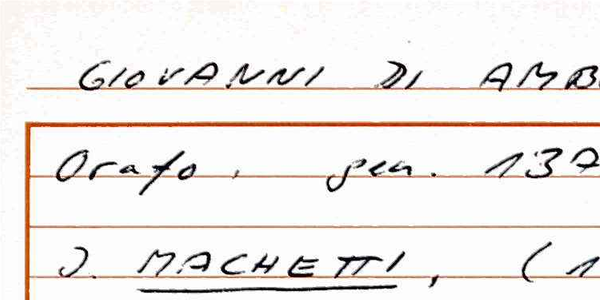 GIOVANNI DI AMB
Orafo, gen. 137
J. MACHETTI, (1